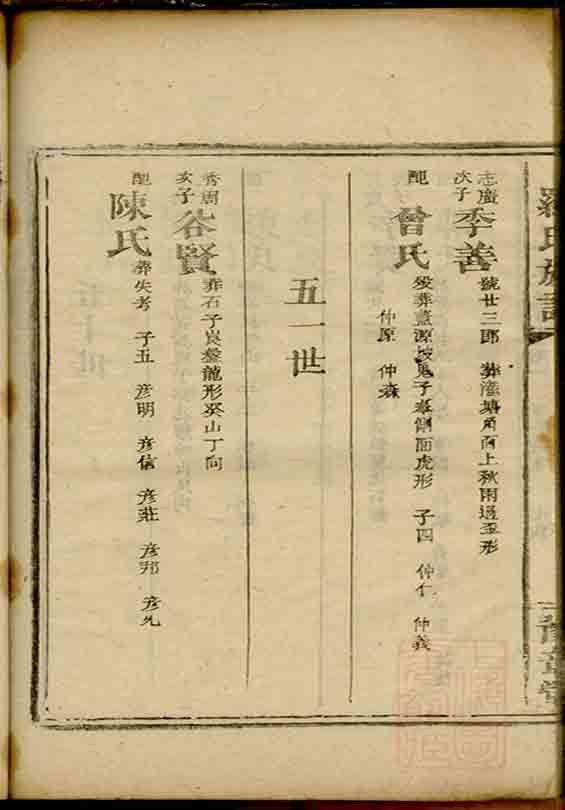 羅氏族譜
豫章堂
志廣
次子
季善
號廿三郎 葬灌塘角面上秋兩邊盃形
配
曾氏
歿葬藍源坡鬼子寨側面虎形 子四 仲仁 仲義
仲原 仲森
五一世
秀周
亥子
谷賢
葬石子崀盤龍形癸山丁向
配
陳氏
葬失考 子五 彦明 彦信 彦莊 彦邦 彦允